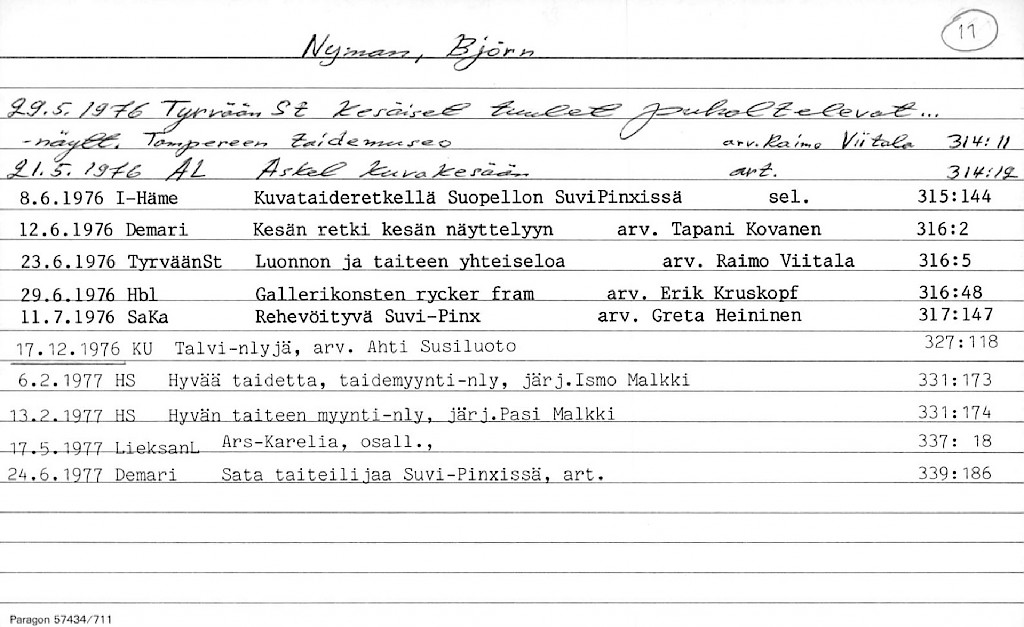 11
Nyman, Björn
29.5.1976 Tyrvään St Kesäiset tuulet puhaltelevat...
-näytt. Tampereen taidemuseo arv. Raimo Viitala 314:11
21.5.1976 AL Askel kuvakesään art. 314:12
8.6.1976 I-Häme Kuvataideretkellä Suopellon SuviPinxissä sel. 315:144
12.6.1976 Demari Kesän retki kesän näyttelyyn arv. Tapani Kovanen 316:2
23.6.1976 TyrväänSt Luonnon ja taiteen yhteiseloa arv. Raimo Viitala 316:5
29.6.1976 Hbl Gallerikonsten rycker fram arv. Erik Kruskopf 316:48
11.7.1976 SaKa Rehevöityvä Suvi-Pinx arv. Greta Heininen 317:147
17.12.1976 KU Talvi-nlyjä, arv. Ahti Susiluoto 327:118
6.2.1977 HS Hyvää taidetta, taidemyynti-nly, järj.Ismo Malkki 331:173
13.2.1977 HS Hyvän taiteen myynti-nly, järj.Pasi Malkki 331:174
17.5.1977 LieksanL Ars-Karelia, osall., 337: 18
24.6.1977 Demari Sata taiteilijaa Suvi-Pinxissä, art. 339:186
Paragon 57434/711